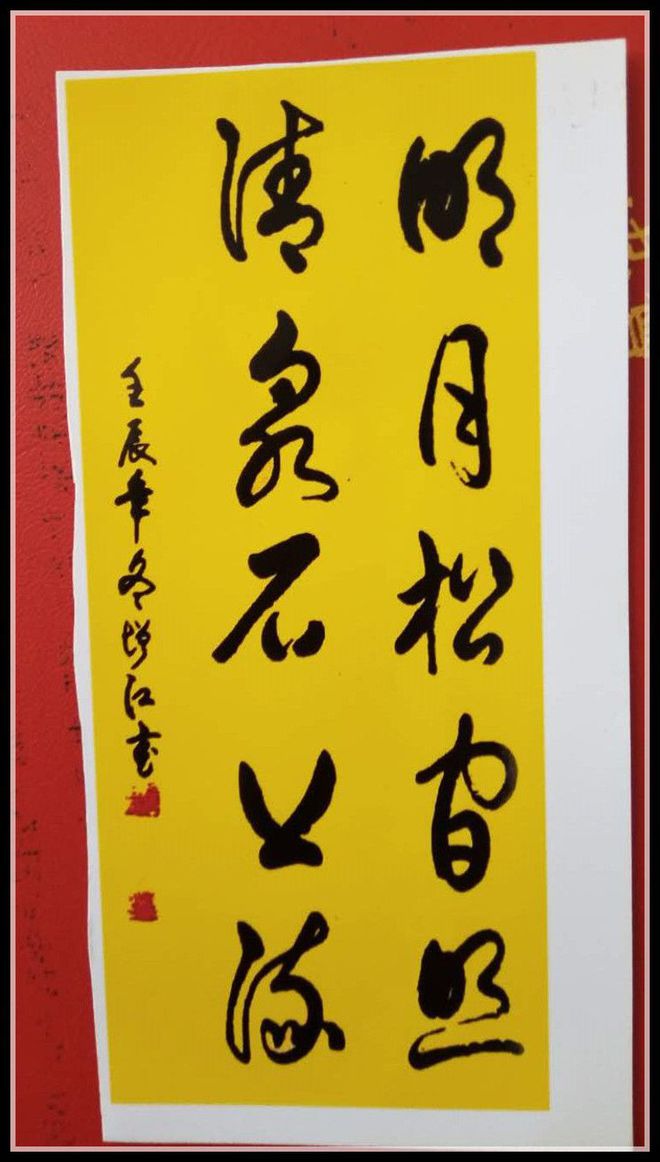 明月松间照
清泉石上流
壬辰年冬增江书